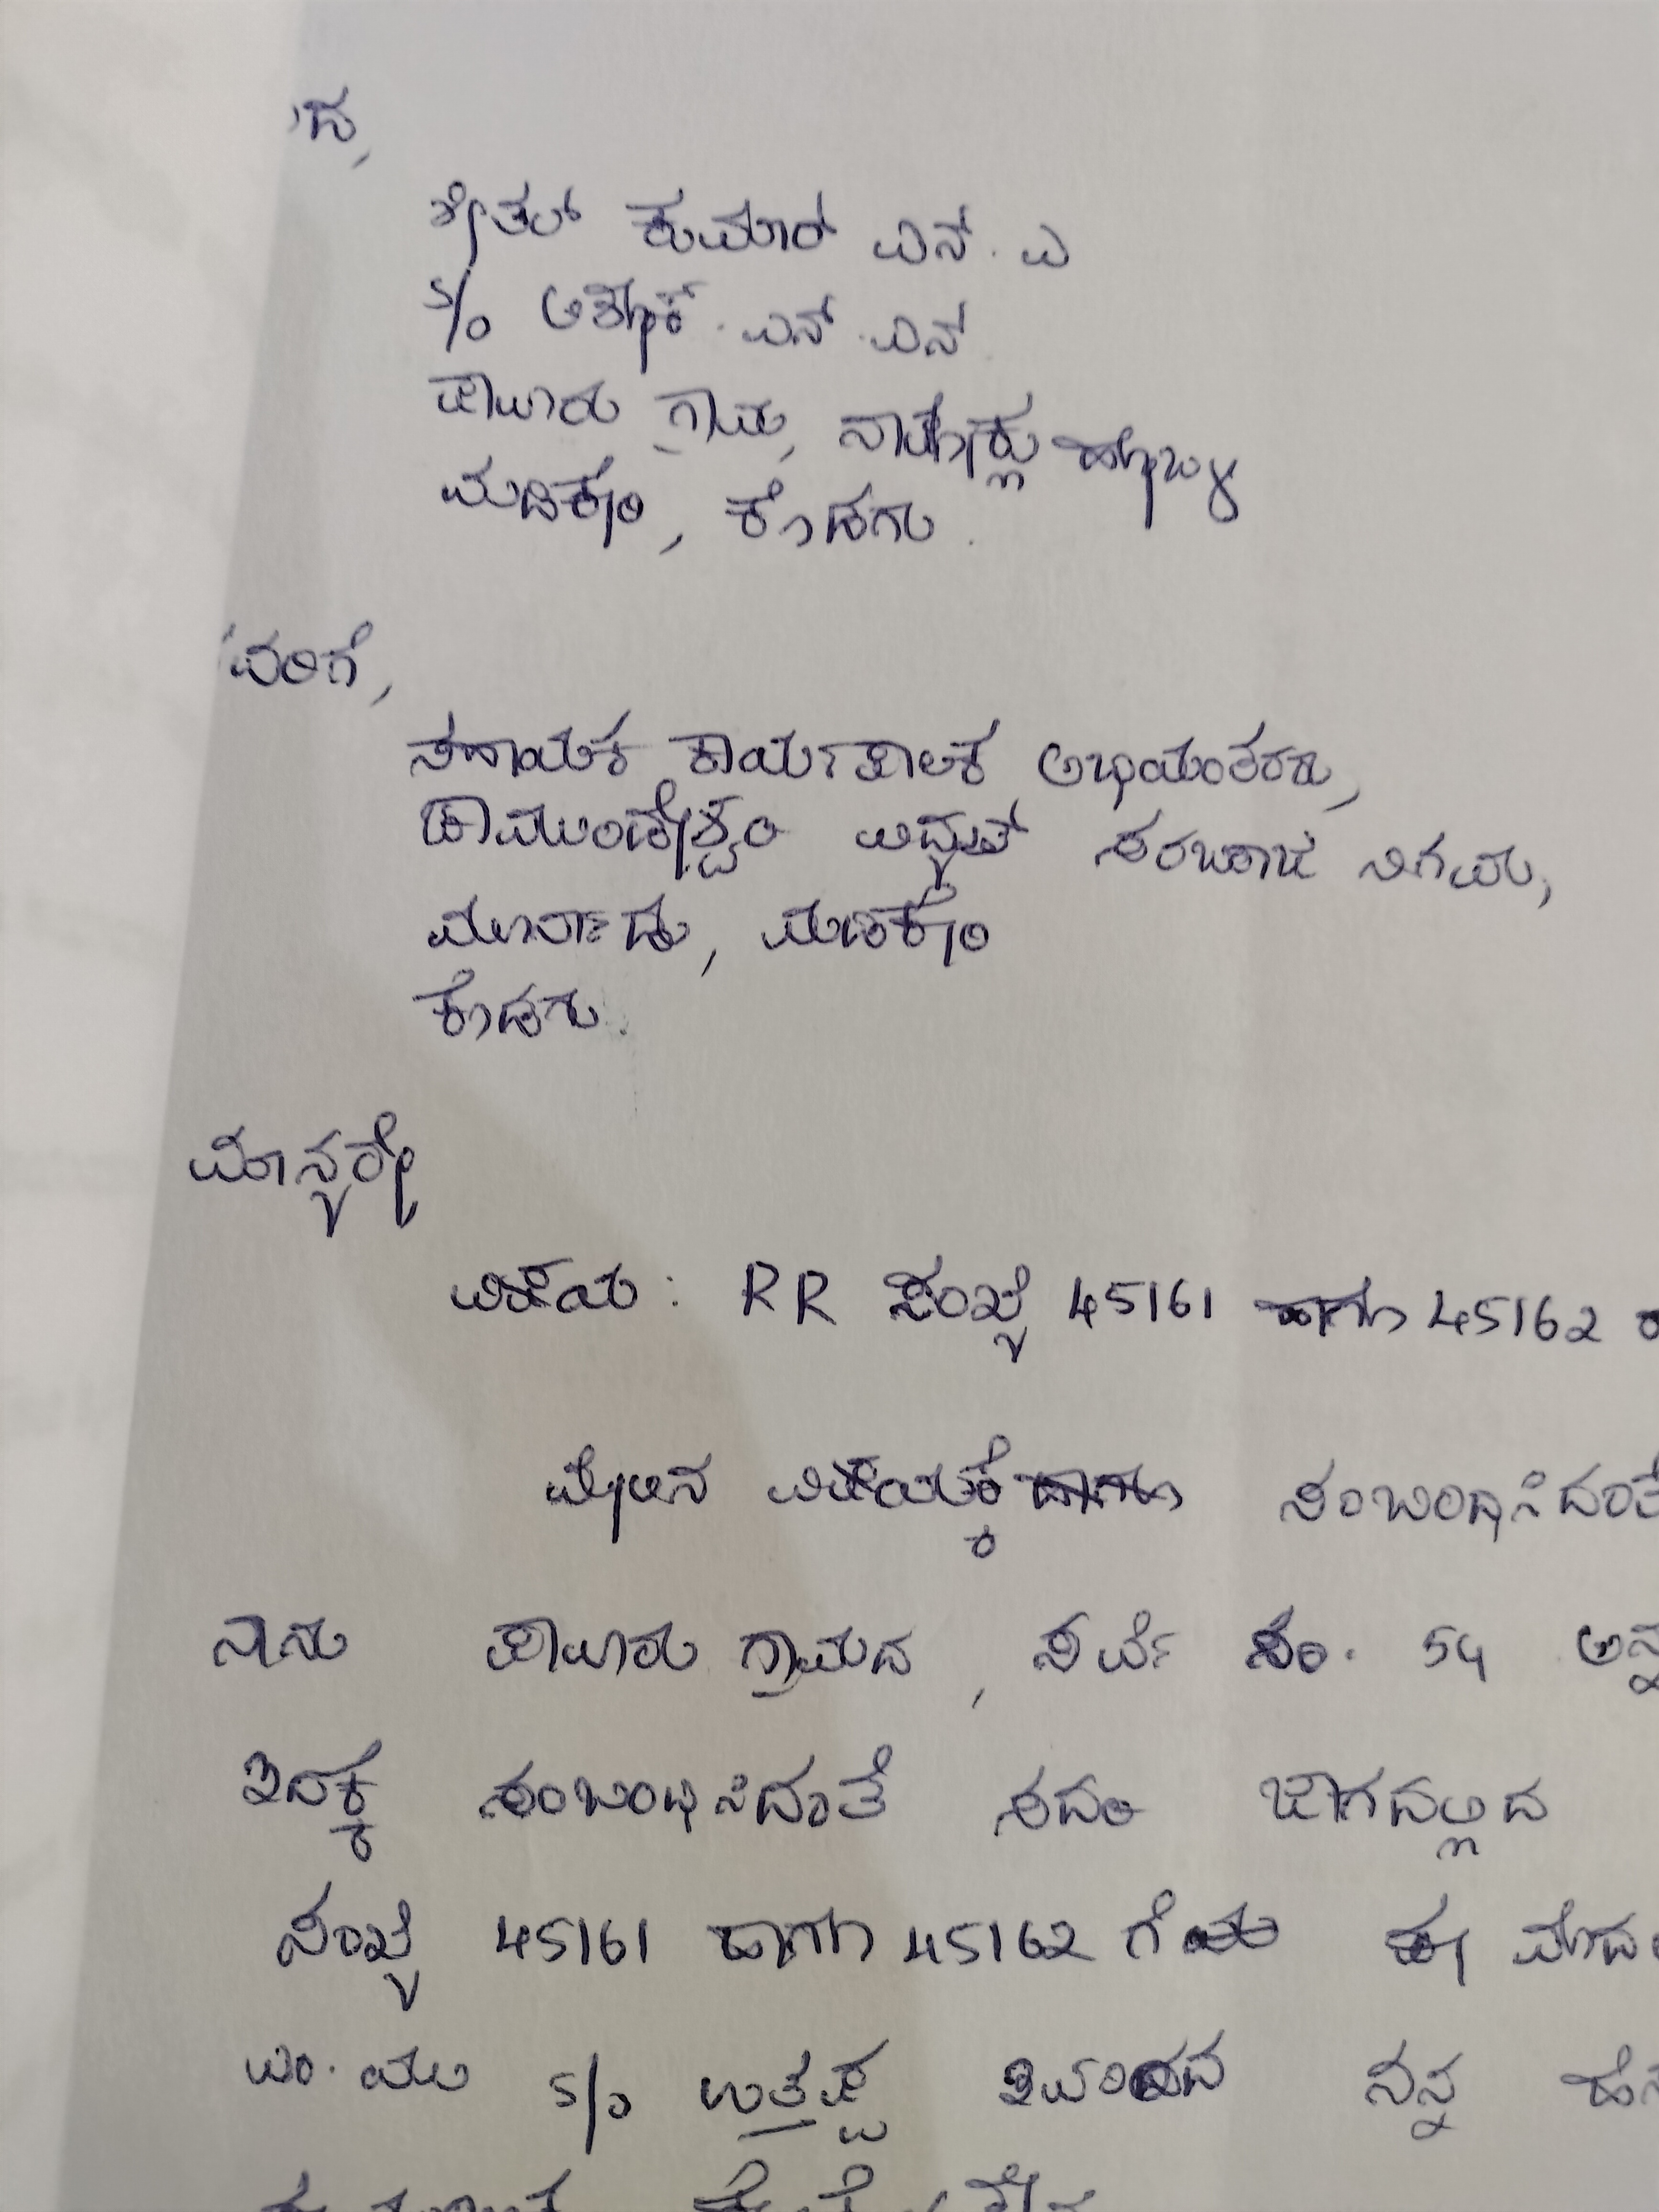 ದ,
ಶೀತಲ್ ಕುಮಾರ್ ಎನ್. ಎ
S/o ಅಶೋಕ್. ಎನ್. ಎನ್
ಪಾಲೂರು ಗ್ರಾಮ, ನಾಪೋಕ್ಲು ಹೋಬಳಿ
ಮಡಿಕೇರಿ, ಕೊಡಗು.
ವರಿಗೆ,
ಸಹಾಯಕ ಕಾರ್ಯಪಾಲಕ ಅಭಿಯಂತರರು,
ಚಾಮುಂಡೇಶ್ವರಿ ವಿದ್ಯುತ್ ಸರಬರಾಜು ನಿಗಮ,
ಮೂರ್ನಾಡು, ಮಡಿಕೇರಿ
ಕೊಡಗು.
ಮಾನ್ಯರೇ
ವಿಷಯ: RR ಸಂಖ್ಯೆ 45161 ಹಾಗೂ 45162
ಮೇಲಿನ ವಿಷಯಕ್ಕೆ ಸಂಬಂಧಿಸಿದಂತೆ
ನಾನು ಪಾಲೂರು ಗ್ರಾಮದ, ಸರ್ವೆ ನಂ. 54
ಇದಕ್ಕೆ ಸಂಬಂಧಿಸಿದಂತೆ ಸದರಿ ಜಾಗದಲ್ಲಿದ
ಸಂಖ್ಯೆ 45161 ಹಾಗೂ 45162 ಗೆ ಈ
S/o ಉತ್ತಪ್ಪ ಇವರಿಂದ ನನ್ನ